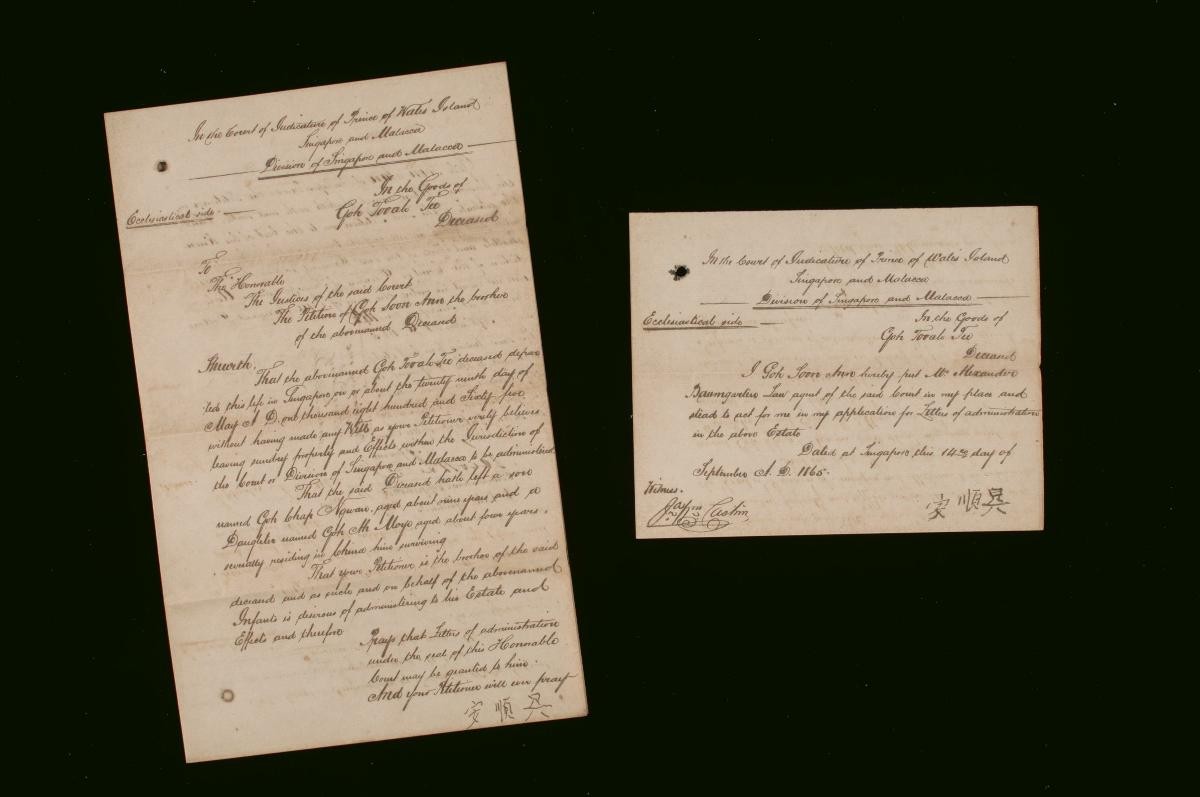 In the Court of Judicature of Prince of Wales Island
Singapore and Malacca
Division of Singapore and Malacca
In the Goods of
Ecclesiastical side
Goh Tooah Tee
Deceased
To
The Honorable
The Justices of the said Court
The Petition of Goh Soon Ann the brother
of the abovenamed Deceased
Sheweth,
That the abovenamed Goh Tooah Tee deceased depar
ted this life in Singapore on or about the twenty ninth day of
May A D. one thousand eight hundred and Sixty five
without having made any Will as your Petitioner verily believes
leaving sundry property and Effects within the Jurisdiction of
the Court or Division of Singapore and Malacca to be administered
That the said Deceased hath left a son
named Goh Chap Ngwan, aged about nine years and a
Daughter named Goh Ah Moye aged about four years,
severally residing in China him surviving
That your Petitioner is the brother of the said
deceased and as such and on behalf of the abovenamed
Infants is desirous of administering to his Estate and
Effects and therefore
Prays that Letters of administration
under the seal of this Honorable
Court may be granted to him.
And your Petitioner will ever pray
安順吳
In the Court of Judicature of Prince of Wales Island
Singapore and Malacca
Division of Singapore and Malacca
Ecclesiastical side
In the Goods of
Goh Tooah Tee
Deceased
I Goh Soon Ann hereby put Mr Alexander
Baumgarten Law agent of the said Court in my place and
stead to act for me in my application for Letters of administration
in the above Estate
Dated at Singapore this 14th day of
September A. D. 1865.
Witness.
安順吳